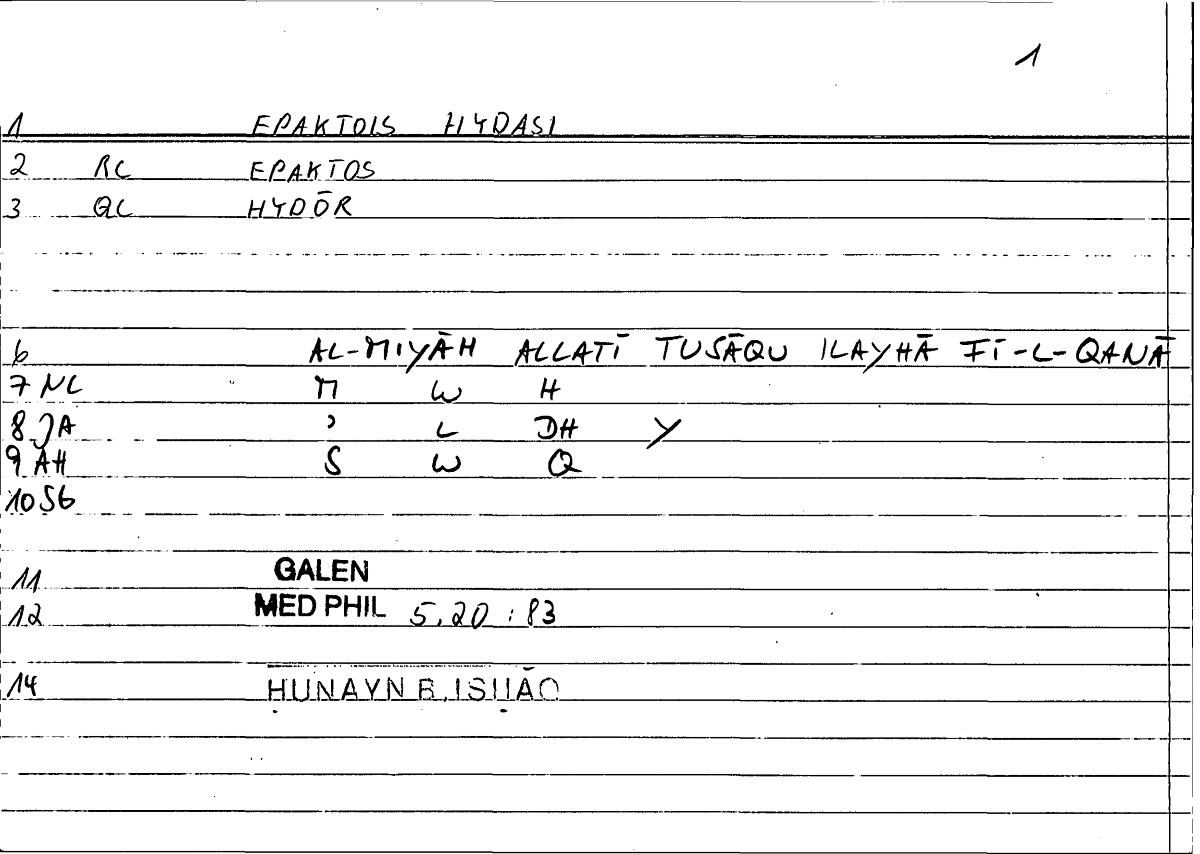 1
1 EPAKTOIS HYDASI
2 RC EPAKTOS
3 QC HYDŌR
6 AL-MIYĀH ALLATĪ TUSĀQU ILAYHĀ FĪ-L-QANĀ
7 NC M W H
8 JA ʾ L DH Y
9 AH S W Q
10 SB
11 GALEN
12 MED PHIL 5,20 : 83
14 ḤUNAYN B. ISḤĀQ